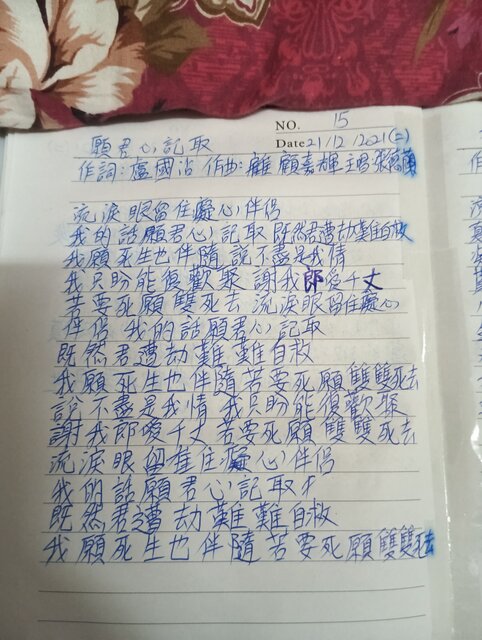 NO. 15
願君心記取 Date 21/12/2021(二)
作詞:盧國沾 作曲: 顧嘉輝 主唱 張德蘭
流淚眼留住癡心伴侶
我的話願君心記取既然君遭劫難難自救
我願死生也伴隨 說不盡是我情
我只盼能復歡聚 謝我郎愛千丈
若要死願雙死去 流淚眼留住癡心
伴侶 我的話願君心記取
既然君遭劫難難自救
我願死生也伴隨若要死願雙雙死去
說不盡是我情 我只盼能復歡聚
謝我郎愛千丈 若要死願雙雙死去
流淚眼留住癡心伴侶
我的話願君心記取
既然君遭劫難難自救
我願死生也伴隨若要死願雙雙死去